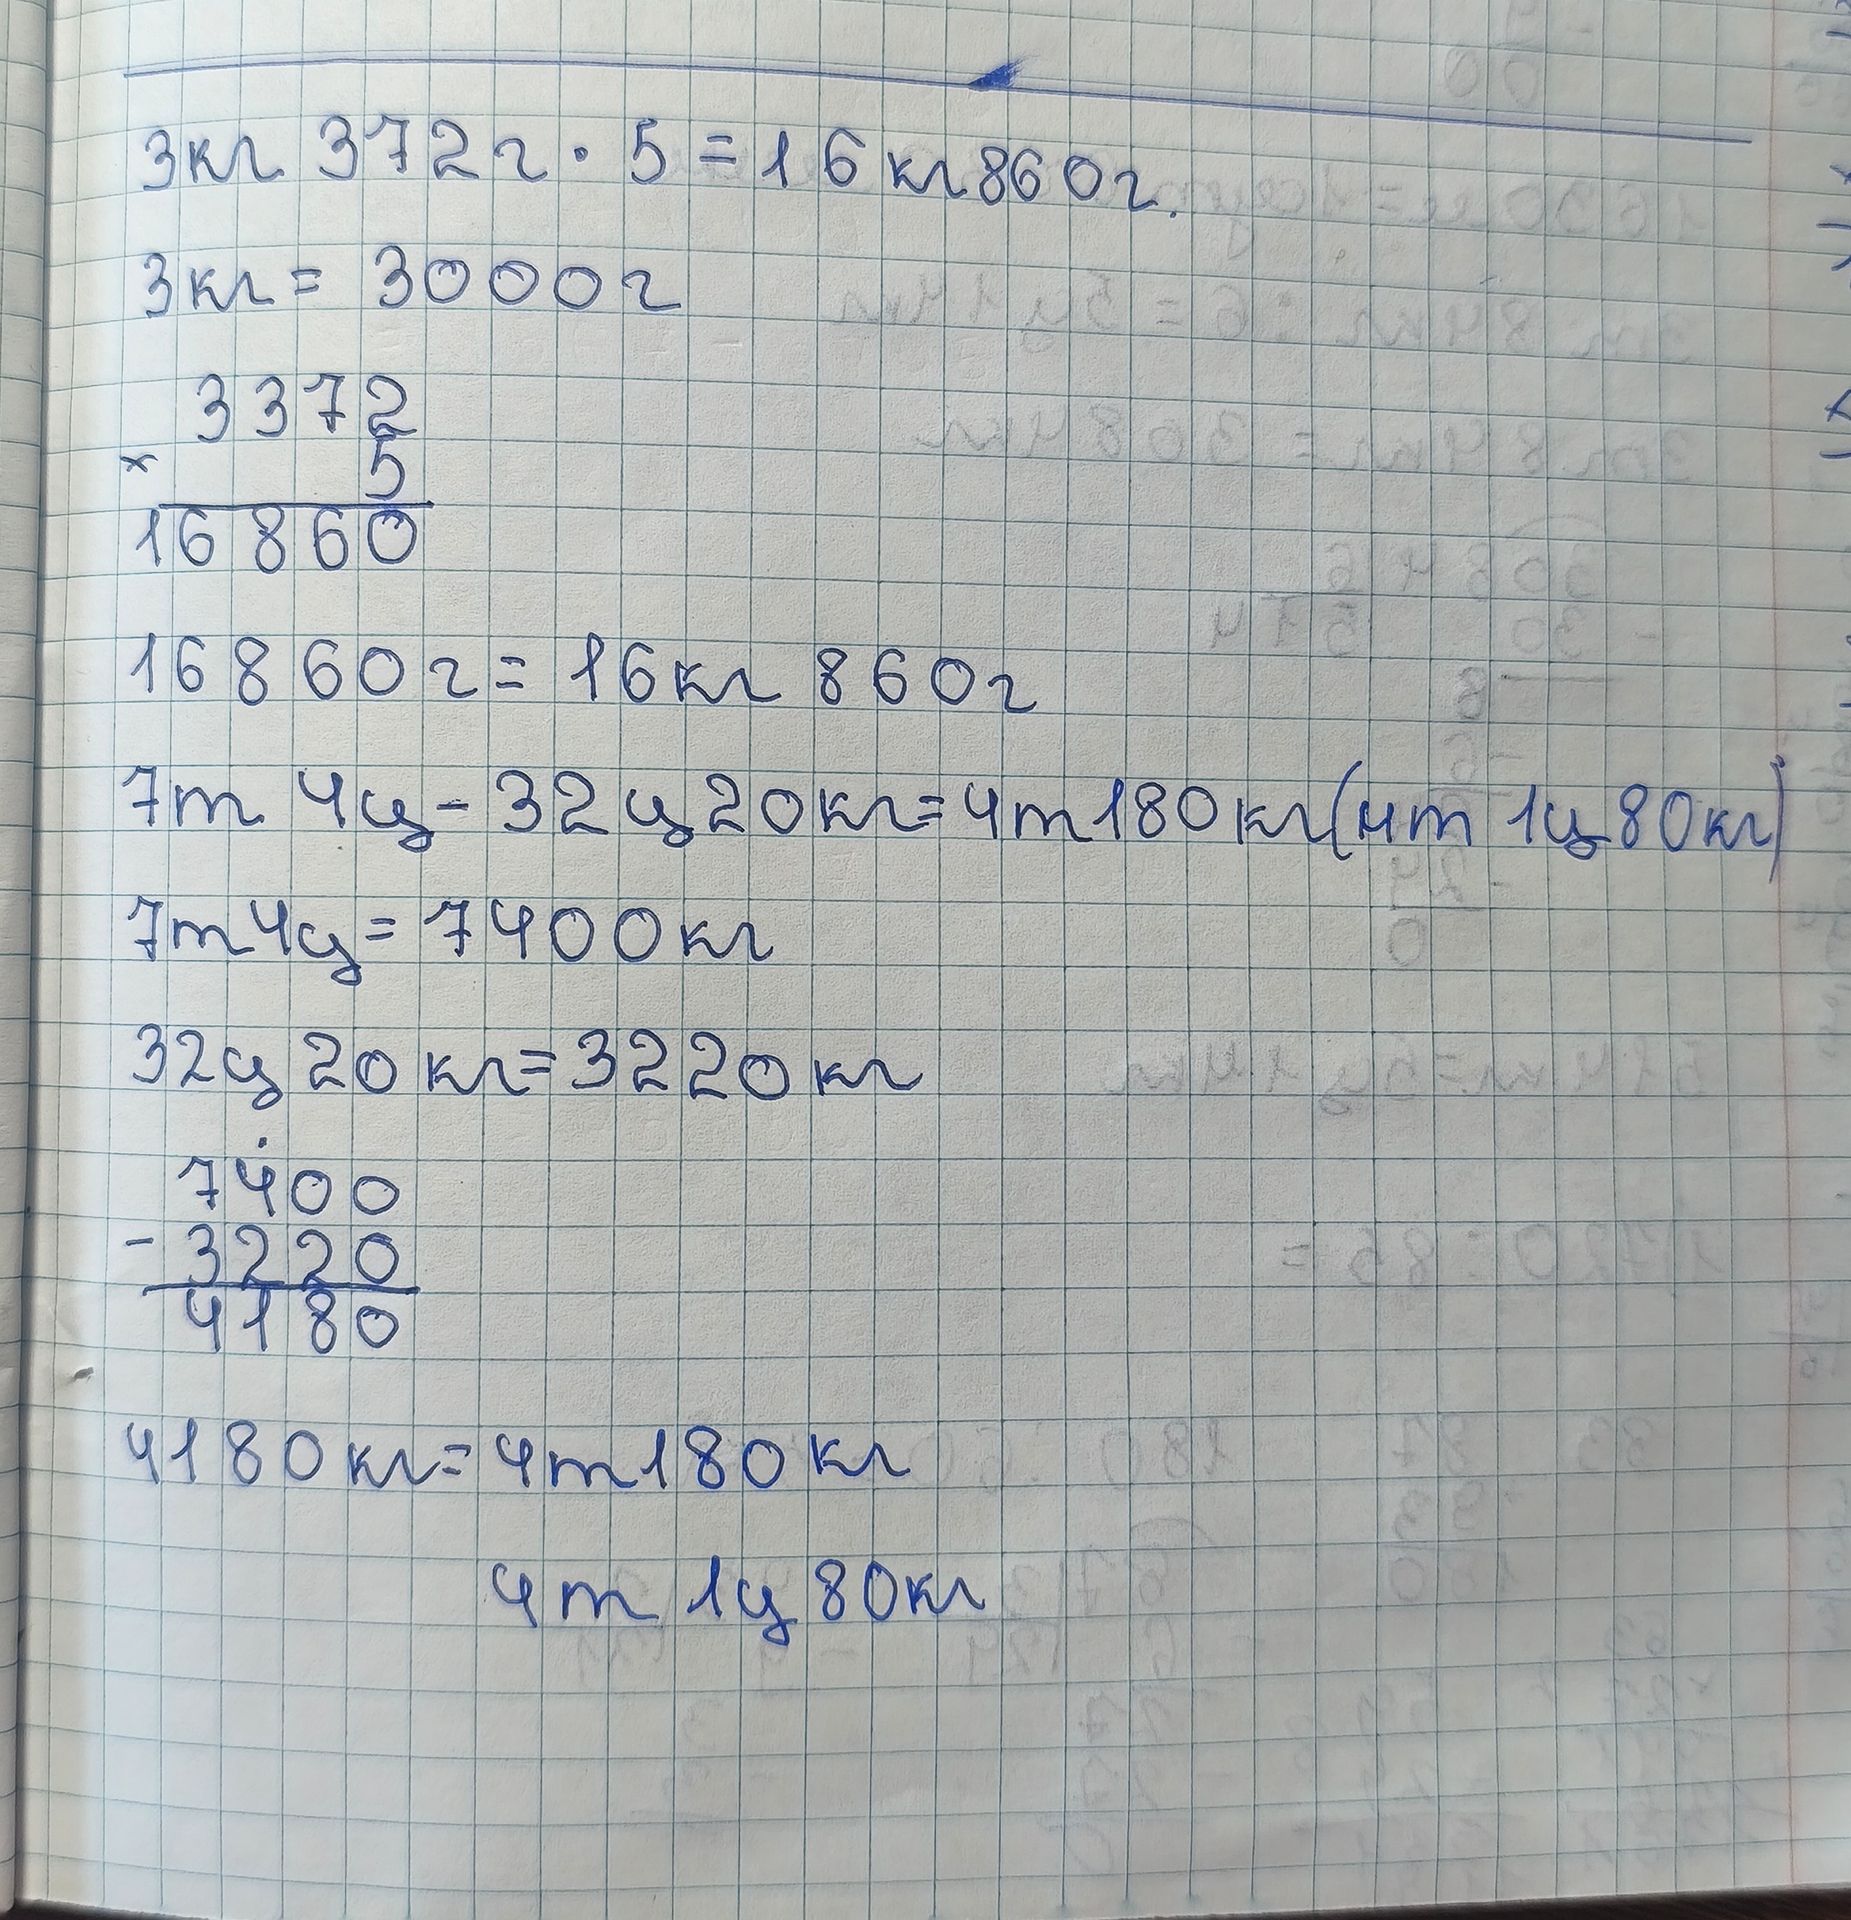 3кг 372г · 5 = 16кг 860г.
3кг = 3000г
3372
× 5
16860
16860г = 16кг 860г
7т 4ц - 32ц 20кг = 4т 180кг (4т 1ц 80кг)
7т 4ц = 7400кг
32ц 20кг = 3220кг
7400
- 3220
4180
4180кг = 4т 180кг
4т 1ц 80кг